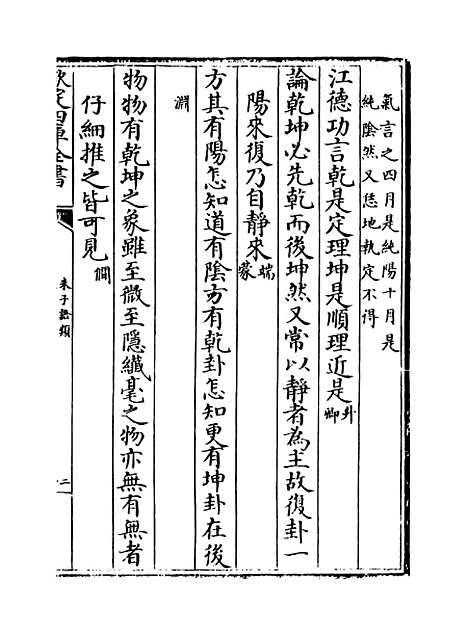 氣言之四月是純陽十月是
純陰然又恁地執定不得
江德功言乾是定理坤是順理近是升卿
論乾坤必先乾而後坤然又常以靜者為主故復卦一
陽來復乃自靜來端蒙
方其有陽怎知道有陰方有乾卦怎知更有坤卦在後
淵
物物有乾坤之象雖至微至隱纖毫之物亦無有無者
仔細推之皆可見僩
欽定四庫全書
朱子語類
二